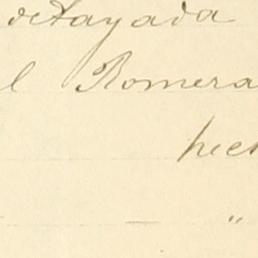 detayada
l Romera
hec
— "